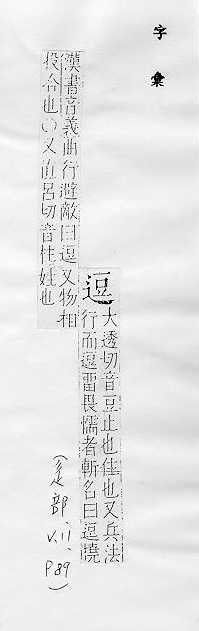 字彙
逗
大透切音豆止也住也又兵法
行而逗留畏懦者斬名曰逗撓
漢書音義曲行避敵曰逗又物相
投合也○又直呂切音柱姓也
(辵部、V.11、P.89)